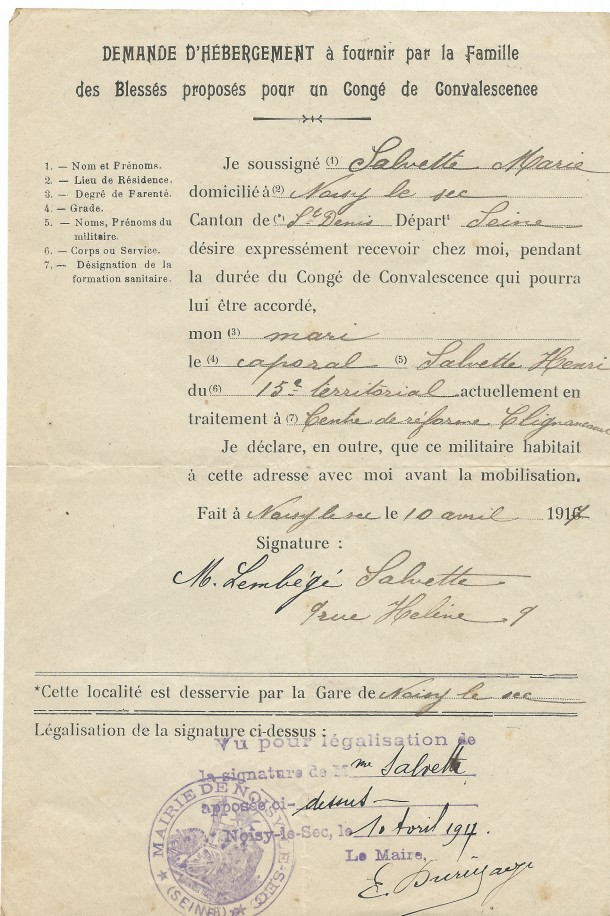 DEMANDE D'HÉBERGEMENT à fournir par la Famille
des Blessés proposés pour un Congé de Convalescence
1. — Nom et Prénoms.
2. — Lieu de Résidence.
3. — Degré de Parenté.
4. — Grade.
5. — Noms, Prénoms du
militaire.
6. — Corps ou Service.
7. — Désignation de la
formation sanitaire.
Je soussigné (1) Salvette Marie
domicilié à (2) Noisy le sec
Canton de (*) St Denis Départt Seine
désire expressément recevoir chez moi, pendant
la durée du Congé de Convalescence qui pourra
lui être accordé,
mon (3) mari
le (4) caporal (5) Salvette Henri
du (6) 15e territorial actuellement en
traitement à (7) Centre de réforme Clignancourt
Je déclare, en outre, que ce militaire habitait
à cette adresse avec moi avant la mobilisation.
Fait à Noisy le sec le 10 avril 1917
Signature :
M. Lembégé Salvette
9 rue Heline 9
*Cette localité est desservie par la Gare de Noisy le sec
Légalisation de la signature ci-dessus :
Vu pour légalisation de
la signature de Mme Salvette
apposée ci-dessus
Noisy-le-Sec, le 10 Avril 1917.
Le Maire,
MAIRIE DE NOISY-LE-SEC
(SEINE)